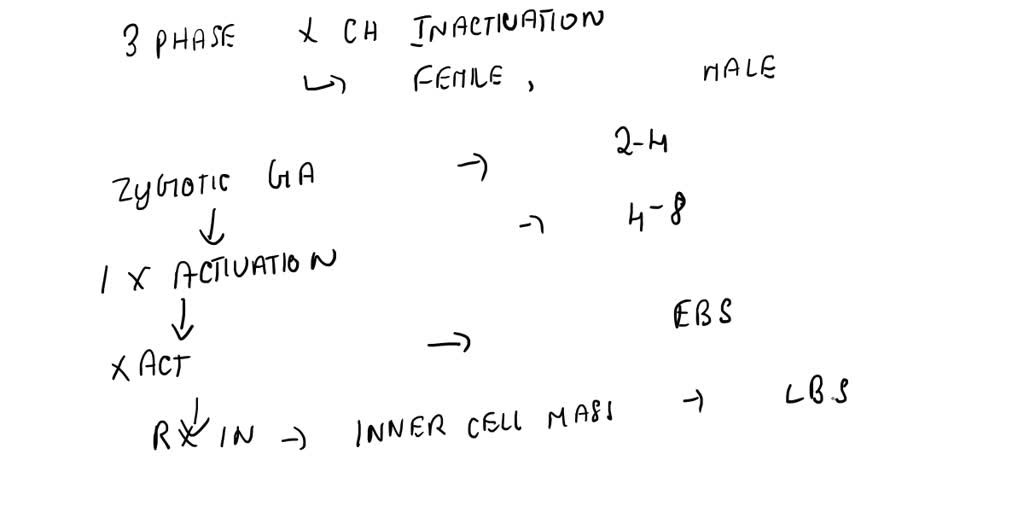 3 PHASE X CH INACTIVATION
↳ FEMLE, MALE
ZYGOTIC GA → 2-4
↓
1 X ACTIVATION → 4-8
↓
X ACT → EBS
↓
RX IN → INNER CELL MASS → LBS